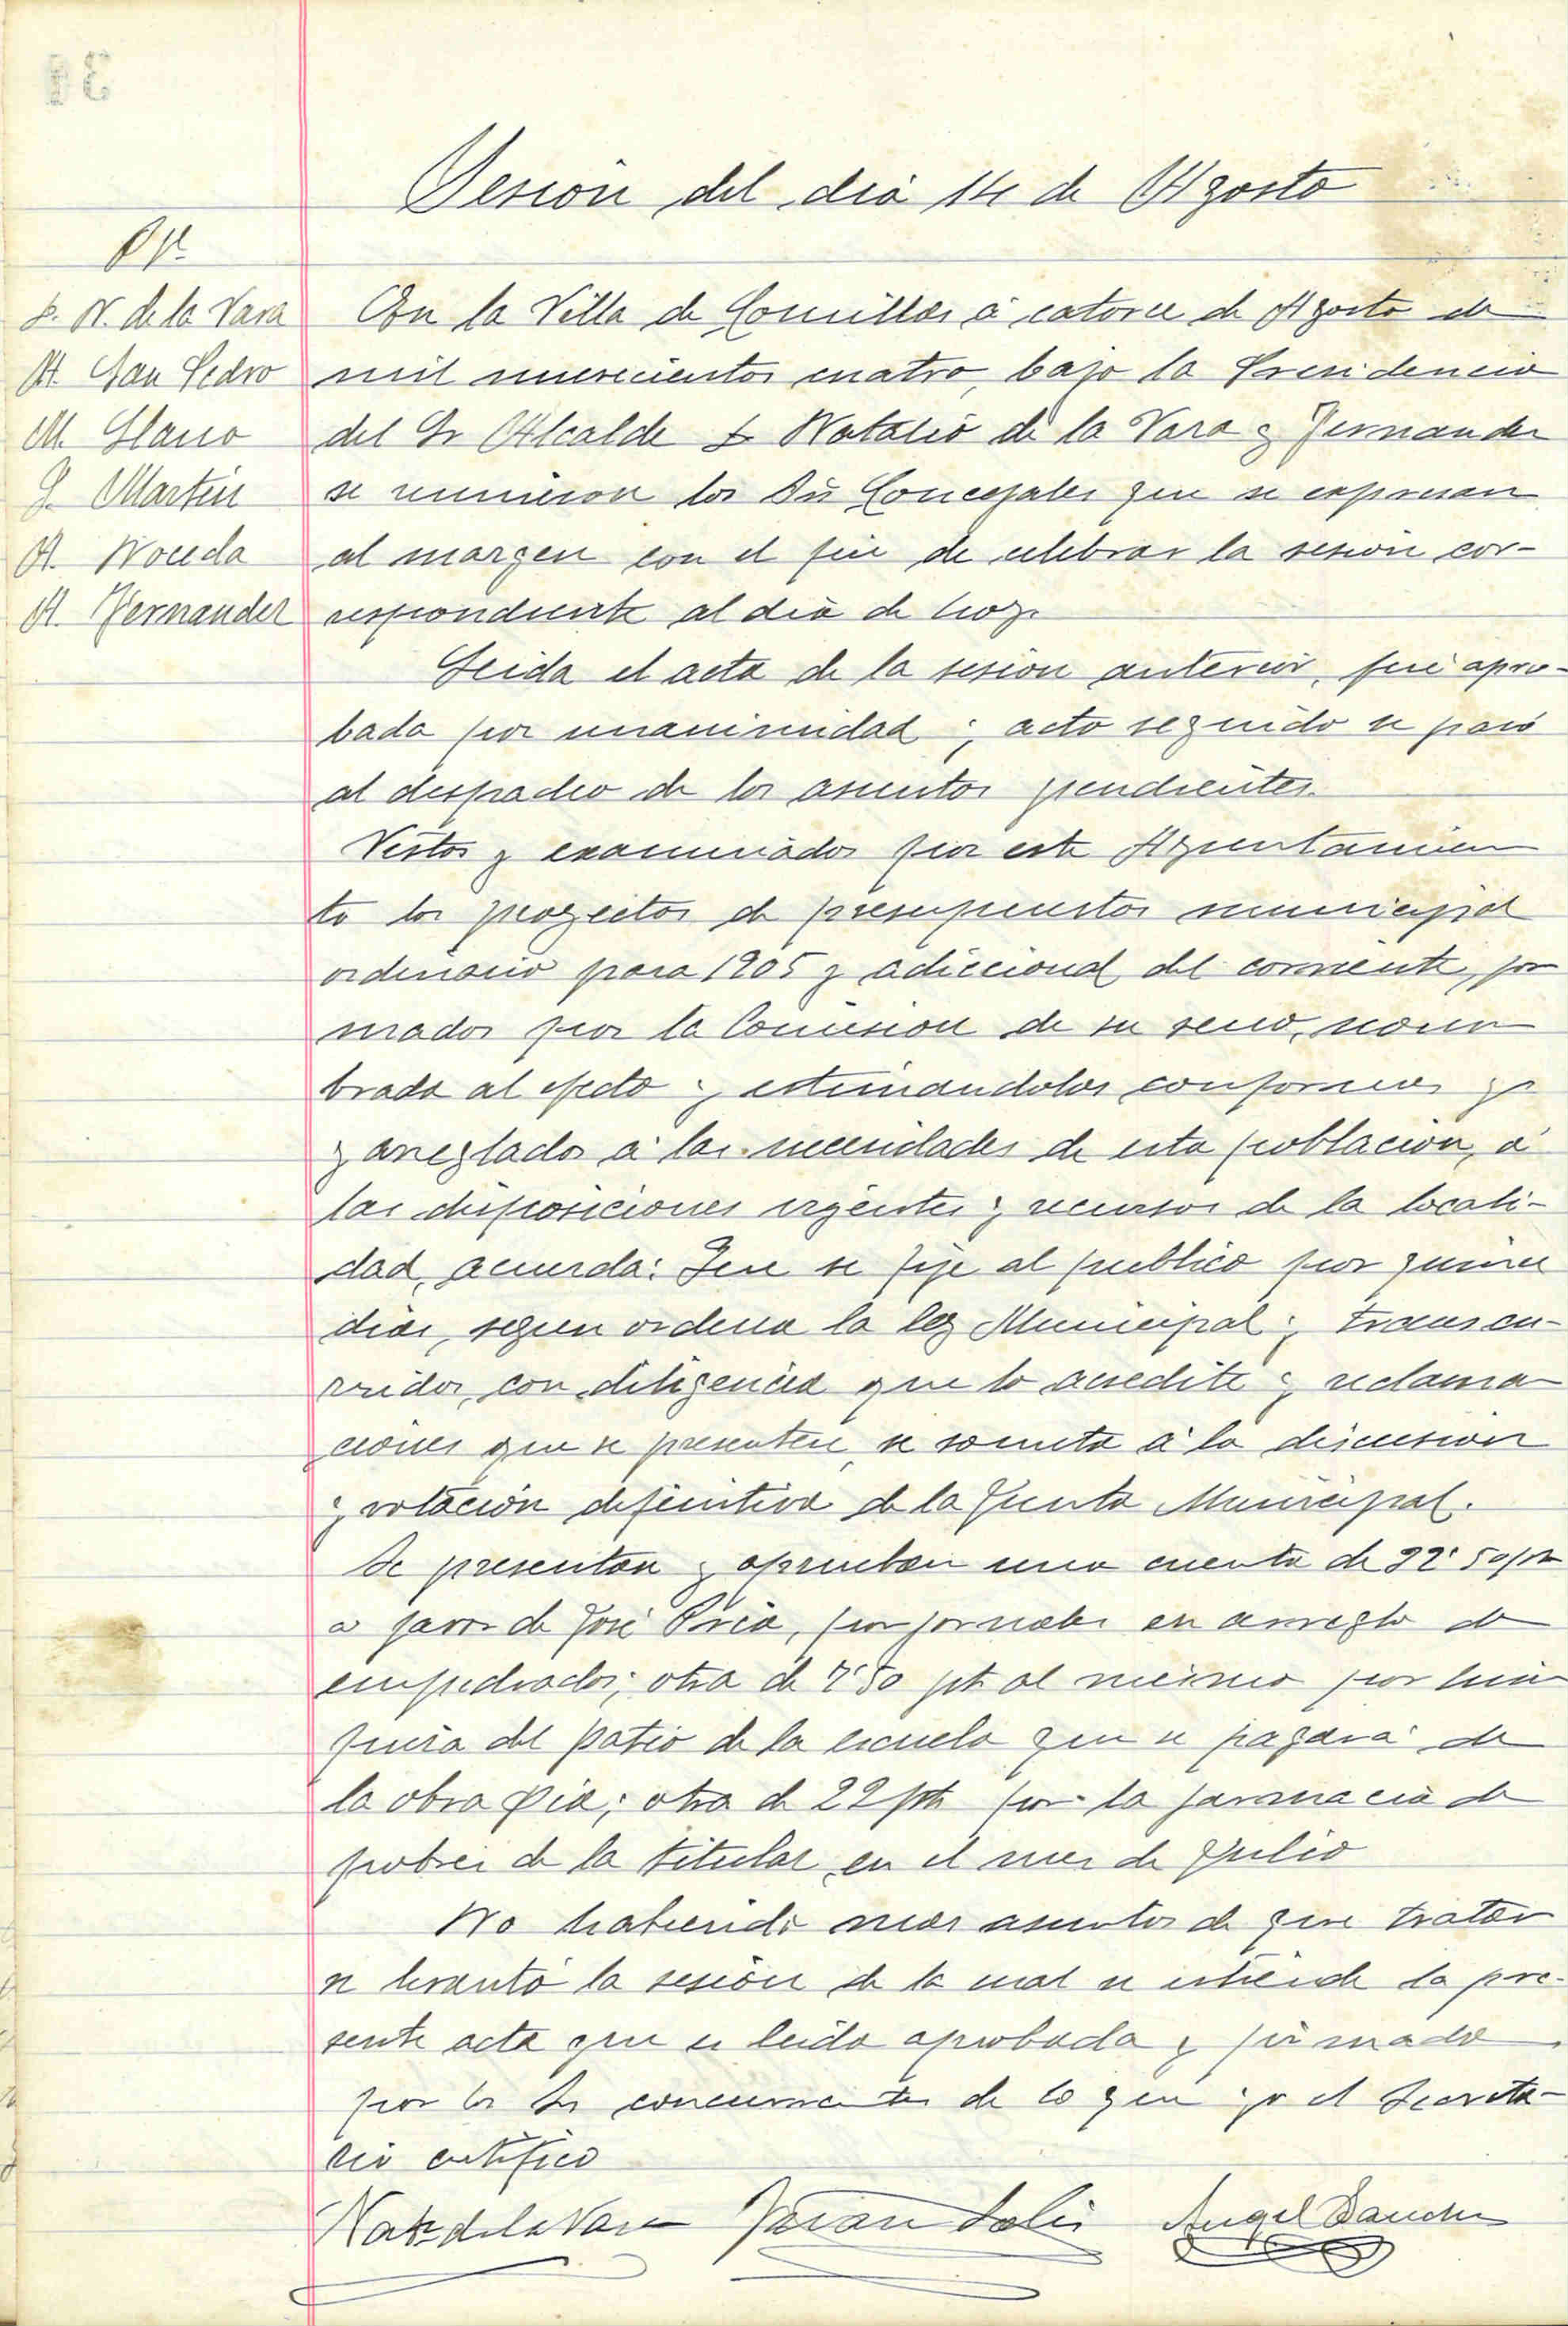 Sesión del dia 14 de Agosto
D. N. de la Vara
A. San Pedro
M. Llano
J. Martin
A. Noceda
A. Fernandez
En la Villa de Comillas á catorce de Agosto de
mil novecientos cuatro, bajo la Presidencia
del Sr Alcalde D Natalio de la Vara y Fernandez
se reunieron los Srs Concejales que se expresan
al margen con el fin de celebrar la sesion cor-
respondiente al dia de hoy.
Leida el acta de la sesion anterior, fué apro-
bada por unanimidad y acto seguido se pasó
al despacho de los asuntos pendientes.
Vistos y examinados por este Ayuntamien
to los proyectos de presupuestos municipal
ordinario para 1905 y adiccional del corriente, for
mados por la Comision de su seno, nom
brada al efecto y estimandolos conformes
y arreglados á las necesidades de esta poblacion, á
las disposiciones vigentes y recursos de la locali-
dad, acuerda: Que se fije al publico por quince
dias, segun ordena la ley Municipal y transcu-
rridos, con diligencia que lo acredite y reclama
ciones que se presenten, se someta á la discusion
y votación definitiva de la Junta Municipal.
Se presentan y aprueban una cuenta de 22'50 pts
a favor de José Pria, por jornales en arreglo de
empedrados; otra de 7'50 pts al mismo por lim
pieza del patio de la escuela que se pagará de
la obra pia; otra de 22 pts por la farmacia de
pobres de la titular en el mes de Julio
No habiendo mas asuntos de que tratar
se levantó la sesión de la cual se estiende la pre-
sente acta que es leida aprobada y firmada
por los Srs concurrentes de lo que yo el Secreta-
rio certifico
Nat. de la Vara Solis Angel Sanchez